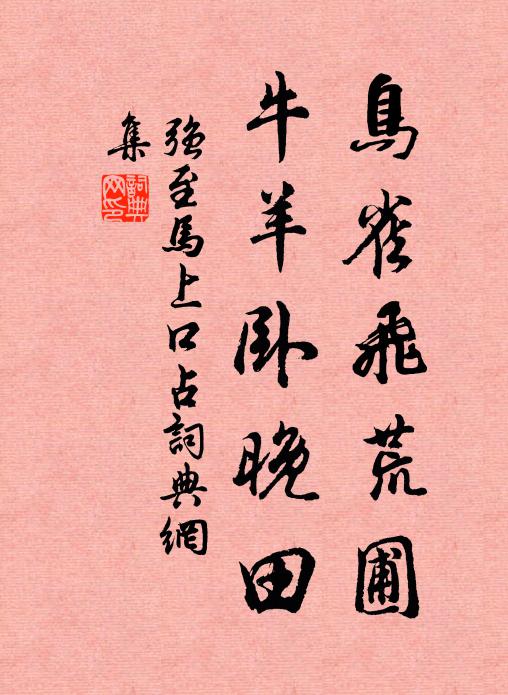 鳥雀飛荒圃
牛羊卧晚田
強至馬上口占詞典網
集
詞典
网印